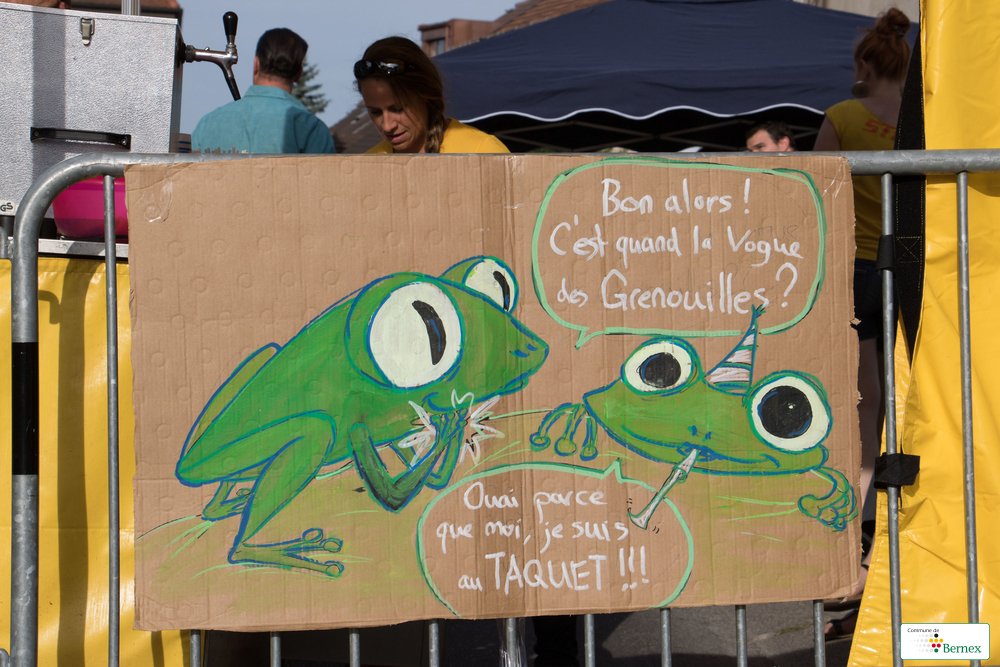 Bon alors !
C'est quand la Vogue
des Grenouilles ?
Ouai parce
que moi, je suis
au TAQUET !!!
GS
Commune de
Bernex